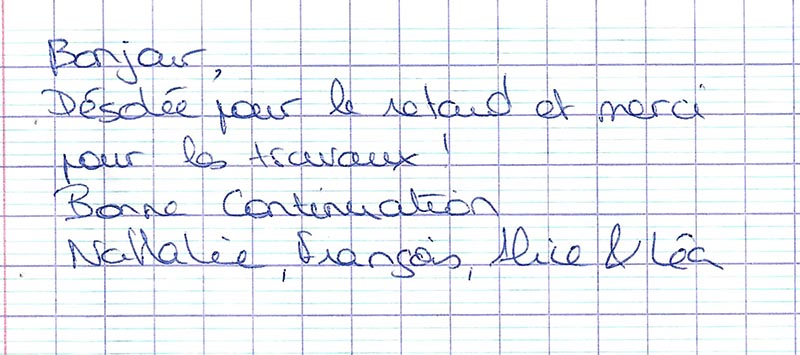 Bonjour,
Désolée pour le retard et merci
pour les travaux !
Bonne Continuation
Nathalie, François, Alice & Léa